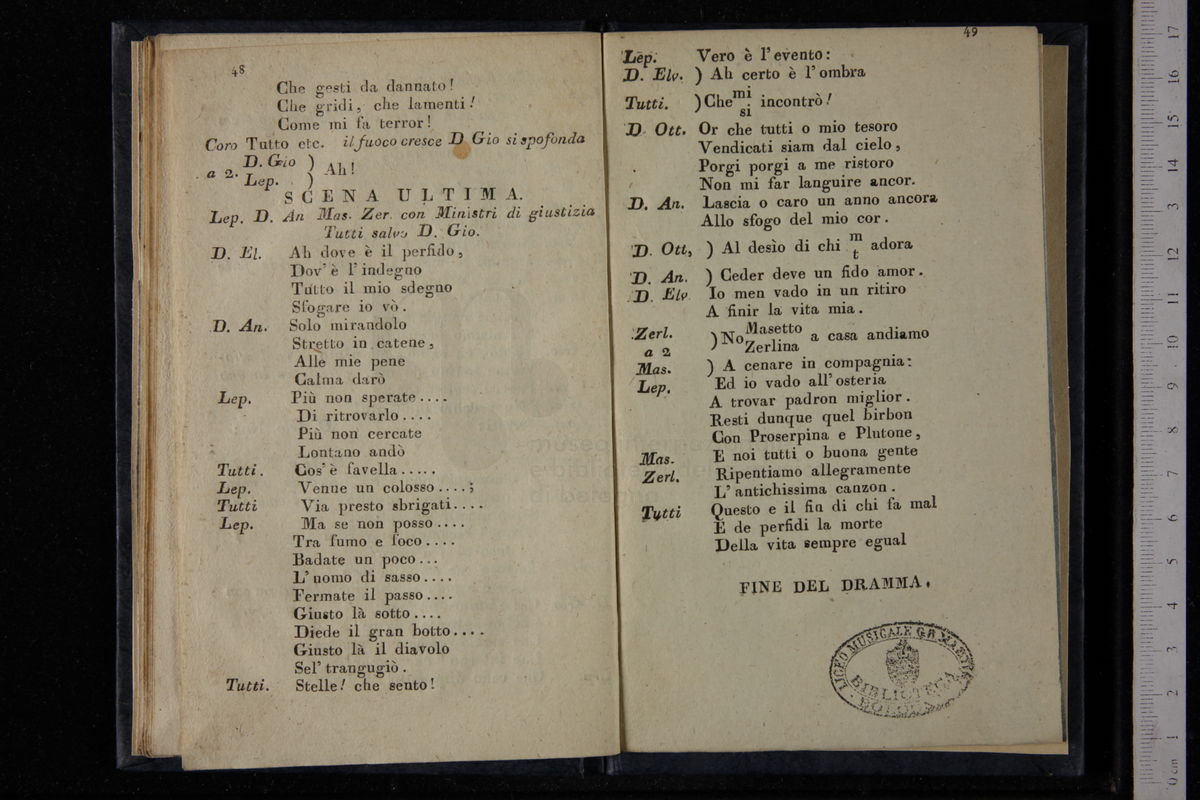 48
Che gesti da dannato!
Che gridi, che lamenti!
Come mi fa terror!
Coro Tutto etc. il fuoco cresce D Gio si spofonda
D. Gio )
a 2. ) Ah!
Lep. )
SCENA ULTIMA.
Lep. D. An Mas. Zer. con Ministri di giustizia
Tutti salvo D. Gio.
D. El. Ah dove è il perfido,
Dov' è l' indegno
Tutto il mio sdegno
Sfogare io vò.
D. An. Solo mirandolo
Stretto in catene,
Alle mie pene
Calma darò
Lep. Più non sperate....
Di ritrovarlo....
Più non cercate
Lontano andò
Tutti. Cos' è favella.....
Lep. Venne un colosso....;
Tutti Via presto sbrigati....
Lep. Ma se non posso....
Tra fumo e foco....
Badate un poco...
L' uomo di sasso....
Fermate il passo....
Giusto là sotto....
Diede il gran botto....
Giusto là il diavolo
Sel' trangugiò.
Tutti. Stelle! che sento!
49
Lep. Vero è l' evento:
D. Elv. ) Ah certo è l' ombra
Tutti. ) Che mi si incontrò!
D Ott. Or che tutti o mio tesoro
Vendicati siam dal cielo,
Porgi porgi a me ristoro
Non mi far languire ancor.
D. An. Lascia o caro un anno ancora
Allo sfogo del mio cor.
D. Ott, ) Al desìo di chi m t adora
D. An. ) Ceder deve un fido amor.
D. Elv Io men vado in un ritiro
A finir la vita mia.
Zerl. ) No Masetto Zerlina a casa andiamo
a 2
Mas. ) A cenare in compagnia:
Lep. Ed io vado all' osteria
A trovar padron miglior.
Resti dunque quel birbon
Con Proserpina e Plutone,
Mas. E noi tutti o buona gente
Zerl. Ripentiamo allegramente
L' antichissima canzon.
Tutti Questo e il fin di chi fa mal
E de perfidi la morte
Della vita sempre egual
FINE DEL DRAMMA.
LICEO MUSICALE G.B. MARTINI
BIBLIOTECA
BOLOGNA
0 cm 1 2 3 4 5 6 7 8 9 10 11 12 13 14 15 16 17